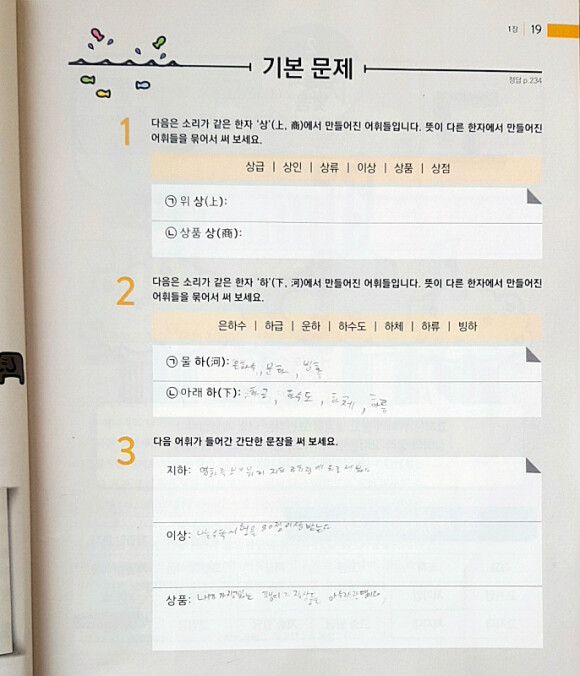 1장 | 19
기본 문제
정답 p.234
1 다음은 소리가 같은 한자 '상'(上, 商)에서 만들어진 어휘들입니다. 뜻이 다른 한자에서 만들어진
어휘들을 묶어서 써 보세요.
상급 | 상인 | 상류 | 이상 | 상품 | 상점
㉠ 위 상(上):
㉡ 상품 상(商):
2 다음은 소리가 같은 한자 '하'(下, 河)에서 만들어진 어휘들입니다. 뜻이 다른 한자에서 만들어진
어휘들을 묶어서 써 보세요.
은하수 | 하급 | 운하 | 하수도 | 하체 | 하류 | 빙하
㉠ 물 하(河): 은하수, 운하, 빙하
㉡ 아래 하(下): 하급, 하수도, 하체, 하류
3 다음 어휘가 들어간 간단한 문장을 써 보세요.
지하: 지하
이상: 나는 수학 시험을 90점 이상 받는다
상품: